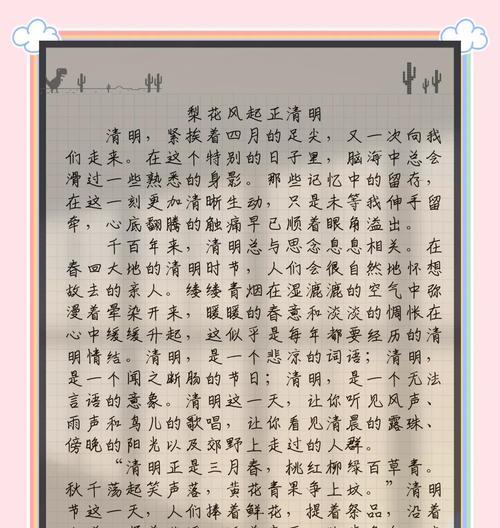 梨花风起正清明
清明，紧挨着四月的足尖，又一次向我
们走来。在这个特别的日子里，脑海中总会
滑过一些熟悉的身影。那些记忆中的留存，
在这一刻更加清晰生动，只是未等我伸手留
牵，心底翻腾的触痛早已顺着眼角溢出。
千百年来，清明总与思念息息相关。在
春回大地的清明时节，人们会很自然地怀想
故去的亲人。缕缕青烟在湿漉漉的空气中弥
漫着晕染开来，暖暖的春意和淡淡的惆怅在
心中缓缓升起，这似乎是每年都要经历的清
明情结。清明，是一个悲凉的词语；清明，
是一个闻之断肠的节日；清明，是一个无法
言语的意象。清明这一天，让你听见风声、
雨声和鸟儿的歌唱，让你看见清晨的露珠、
傍晚的阳光以及郊野上走过的人群。
“清明正是三月春，桃红柳绿百草青。
秋千荡起笑声落，黄花青果争上坟。”清明
节这一天，人们捧着鲜花，提着祭品，沿着